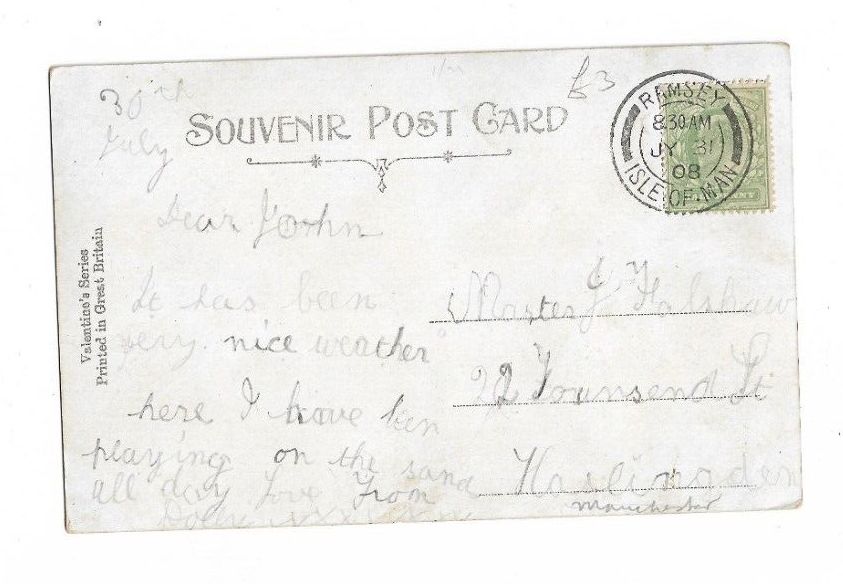 30th
July
SOUVENIR POST CARD
£3
RAMSEY
8.30AM
JY 31
08
ISLE-OF-MAN
Valentine's Series
Printed in Great Britain
Dear John
It has been
very nice weather
here I have ben
playing on the sand
all day Love From
Dolly xxxxxxx
Master J Halshaw
22 Townsend St
Haslingden
Manchester